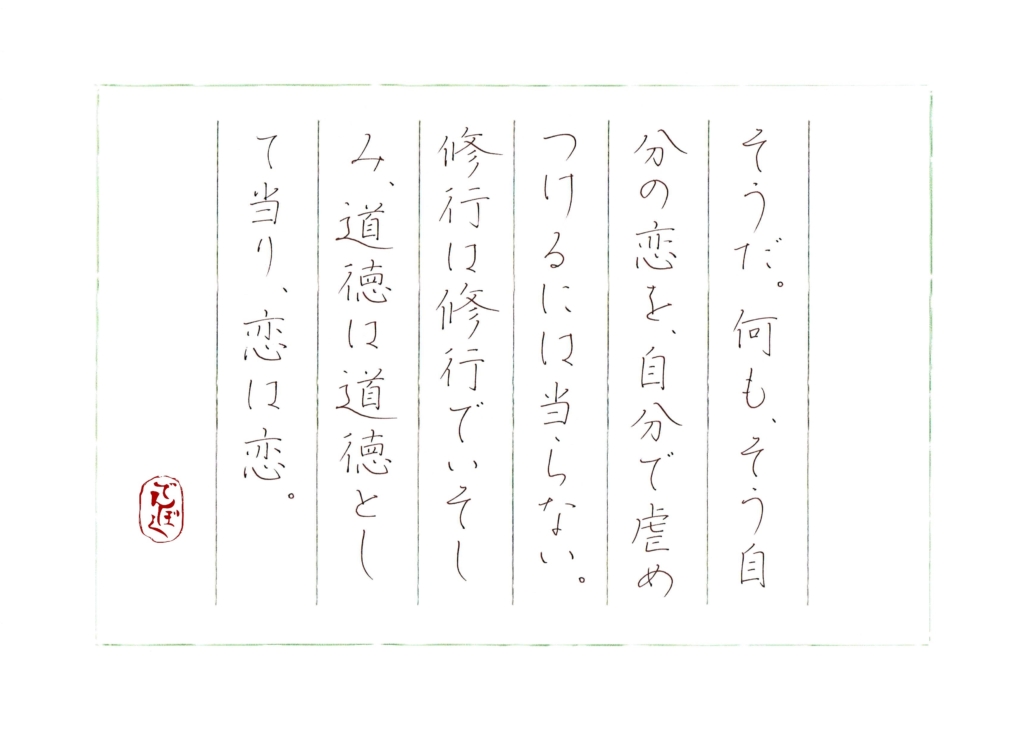 そうだ。何も、そう自
分の恋を、自分で虐め
つけるには当らない。
修行は修行でいそし
み、道徳は道徳とし
て当り、恋は恋。
でんぼく